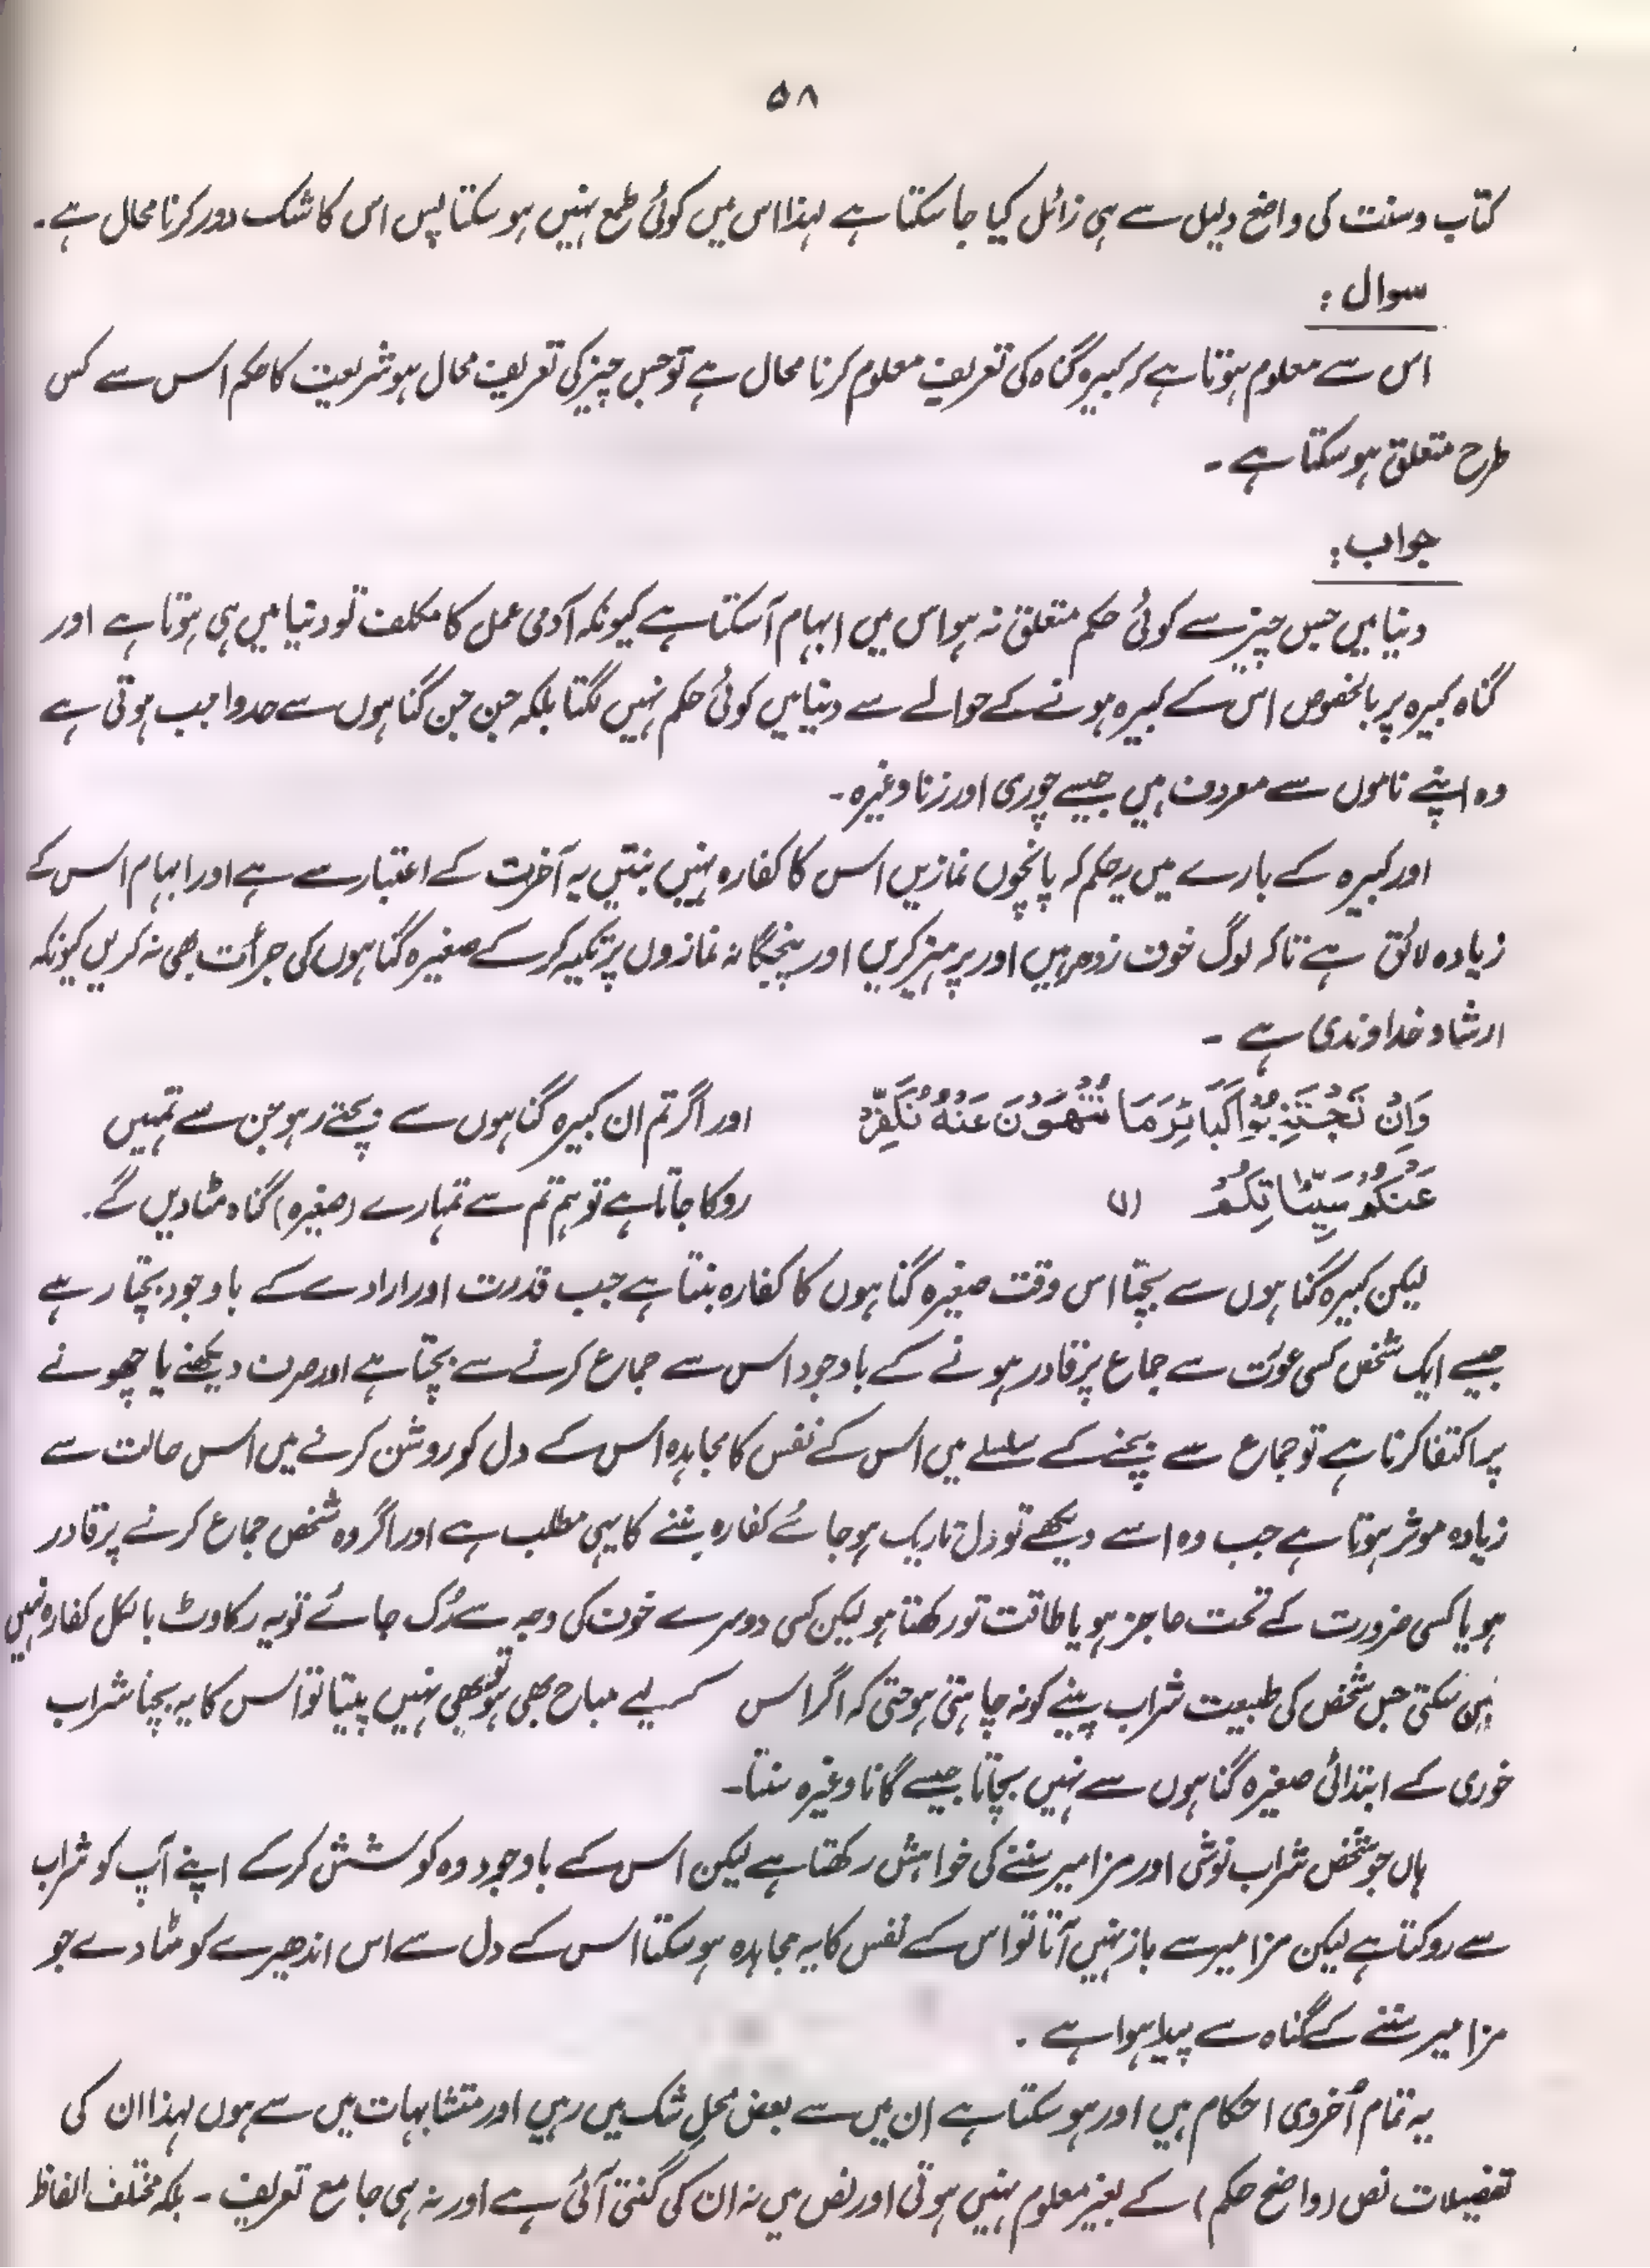 ۵۸
کتاب و سنت کی واضح دلیل سے ہی زائل کیا جا سکتا ہے لہذا اس میں کوئی طمع نہیں ہو سکتا پس اس کا شک دور کرنا محال ہے۔
سوال :
اس سے معلوم ہوتا ہے کہ کبیرہ گناہ کی تعریف معلوم کرنا محال ہے تو جس چیز کی تعریف محال ہو شریعت کا حکم اس سے کس
طرح متعلق ہو سکتا ہے ۔
جواب :
دنیا میں جس چیز سے کوئی حکم متعلق نہ ہو اس میں ابہام آ سکتا ہے کیونکہ آدمی عمل کا مکلف تو دنیا میں ہی ہوتا ہے اور
گناہ کبیرہ پر بالخصوص اس کے کبیرہ ہونے کے حوالے سے دنیا میں کوئی حکم نہیں لگتا بلکہ جن جن گناہوں سے حد واجب ہوتی ہے
وہ اپنے ناموں سے معروف ہیں جیسے چوری اور زنا وغیرہ ۔
اور کبیرہ کے بارے میں یہ حکم کہ پانچوں نمازیں اس کا کفارہ نہیں بنتیں یہ آخرت کے اعتبار سے ہے اور ابہام اس کے
زیادہ لائق ہے تاکہ لوگ خوف زدہ رہیں اور پرہیز کریں اور پنجگانہ نمازوں پر تکیہ کرکے صغیرہ گناہوں کی جرأت بھی نہ کریں کیونکہ
ارشاد خداوندی ہے ۔
وَاِنْ تَجْتَنِبُوْا کَبَائِرَ مَا تُنْهَوْنَ عَنْهُ نُکَفِّرْ اور اگر تم ان کبیرہ گناہوں سے بچتے رہو جن سے تمہیں
عَنْکُمْ سَیِّئَاتِکُمْ (۱) روکا جاتا ہے تو ہم تم سے تمہارے (صغیرہ) گناہ مٹا دیں گے۔
لیکن کبیرہ گناہوں سے بچنا اس وقت صغیرہ گناہوں کا کفارہ بنتا ہے جب قدرت اور ارادے کے باوجود بچتا رہے
جیسے ایک شخص کسی عورت سے جماع پر قادر ہونے کے باوجود اس سے جماع کرنے سے بچتا ہے اور صرف دیکھنے یا چھونے
پر اکتفا کرتا ہے تو جماع سے بچنے کے سلسلے میں اس کے نفس کا مجاہدہ اس کے دل کو روشن کرنے میں اس حالت سے
زیادہ موثر ہوتا ہے جب وہ اسے دیکھے تو دل تاریک ہو جائے کفارہ بننے کا یہی مطلب ہے اور اگر وہ شخص جماع کرنے پر قادر
ہو یا کسی ضرورت کے تحت عاجز ہو یا طاقت تو رکھتا ہو لیکن کسی دوسرے خوف کی وجہ سے رُک جائے تو یہ رکاوٹ بالکل کفارہ نہیں
بن سکتی جس شخص کی طبیعت شراب پینے کو نہ چاہتی ہو حتی کہ اگر اس کے لیے مباح بھی ہو تو بھی نہیں پیتا تو اس کا یہ بچنا شراب
خوری کے ابتدائی صغیرہ گناہوں سے نہیں بچاتا جیسے گانا وغیرہ سننا ۔
ہاں جو شخص شراب نوشی اور مزامیر سننے کی خواہش رکھتا ہے لیکن اس کے باوجود وہ کوشش کرکے اپنے آپ کو شراب
سے روکتا ہے لیکن مزامیر سے باز نہیں آتا تو اس کے نفس کا یہ مجاہدہ ہو سکتا اس کے دل سے اس اندھیرے کو مٹا دے جو
مزامیر سننے کے گناہ سے پیدا ہوا ہے ۔
یہ تمام اُخروی احکام ہیں اور ہو سکتا ہے اِن میں سے بعض محل شک میں رہیں اور متشابہات میں سے ہوں لہذا ان کی
تفصیلات نص (واضح حکم) کے بغیر معلوم نہیں ہوتی اور نص میں نہ ان کی گنتی آئی ہے اور نہ ہی جامع تعریف ۔ بلکہ مختلف الفاظ